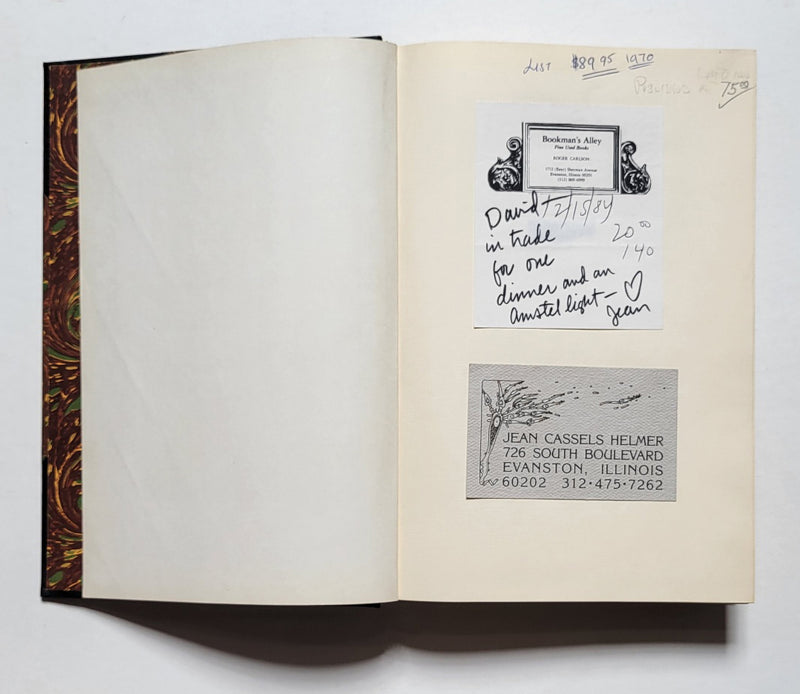 LIST $89.95 1970
PUBLISHED AT 75.00
Bookman's Alley
Fine Used Books
ROGER CARLSON
1712 (Rear) Sherman Avenue
Evanston, Illinois 60201
(312) 869-6999
David 12/15/84
in trade 20.00
for one 1.40
dinner and an
amstel light— ♡
Jean
JEAN CASSELS HELMER
726 SOUTH BOULEVARD
EVANSTON, ILLINOIS
60202 312·475·7262